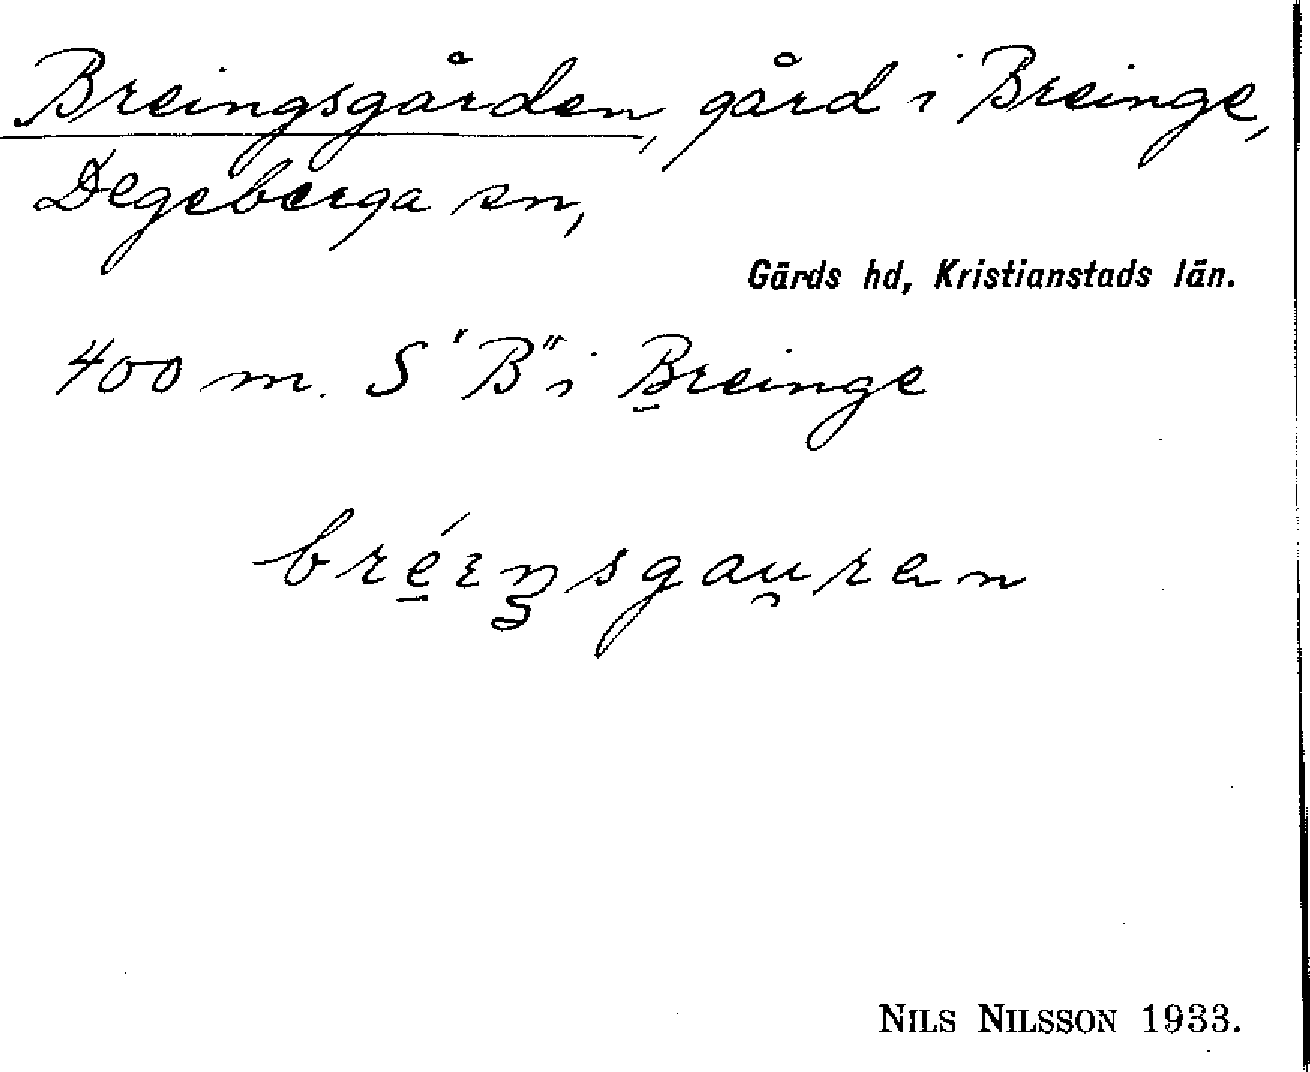 Breingsgården, gård i Breinge,
Degeberga sn,
Gärds hd, Kristianstads län.
400 m. S 'B" i Breinge
NILS NILSSON 1933.